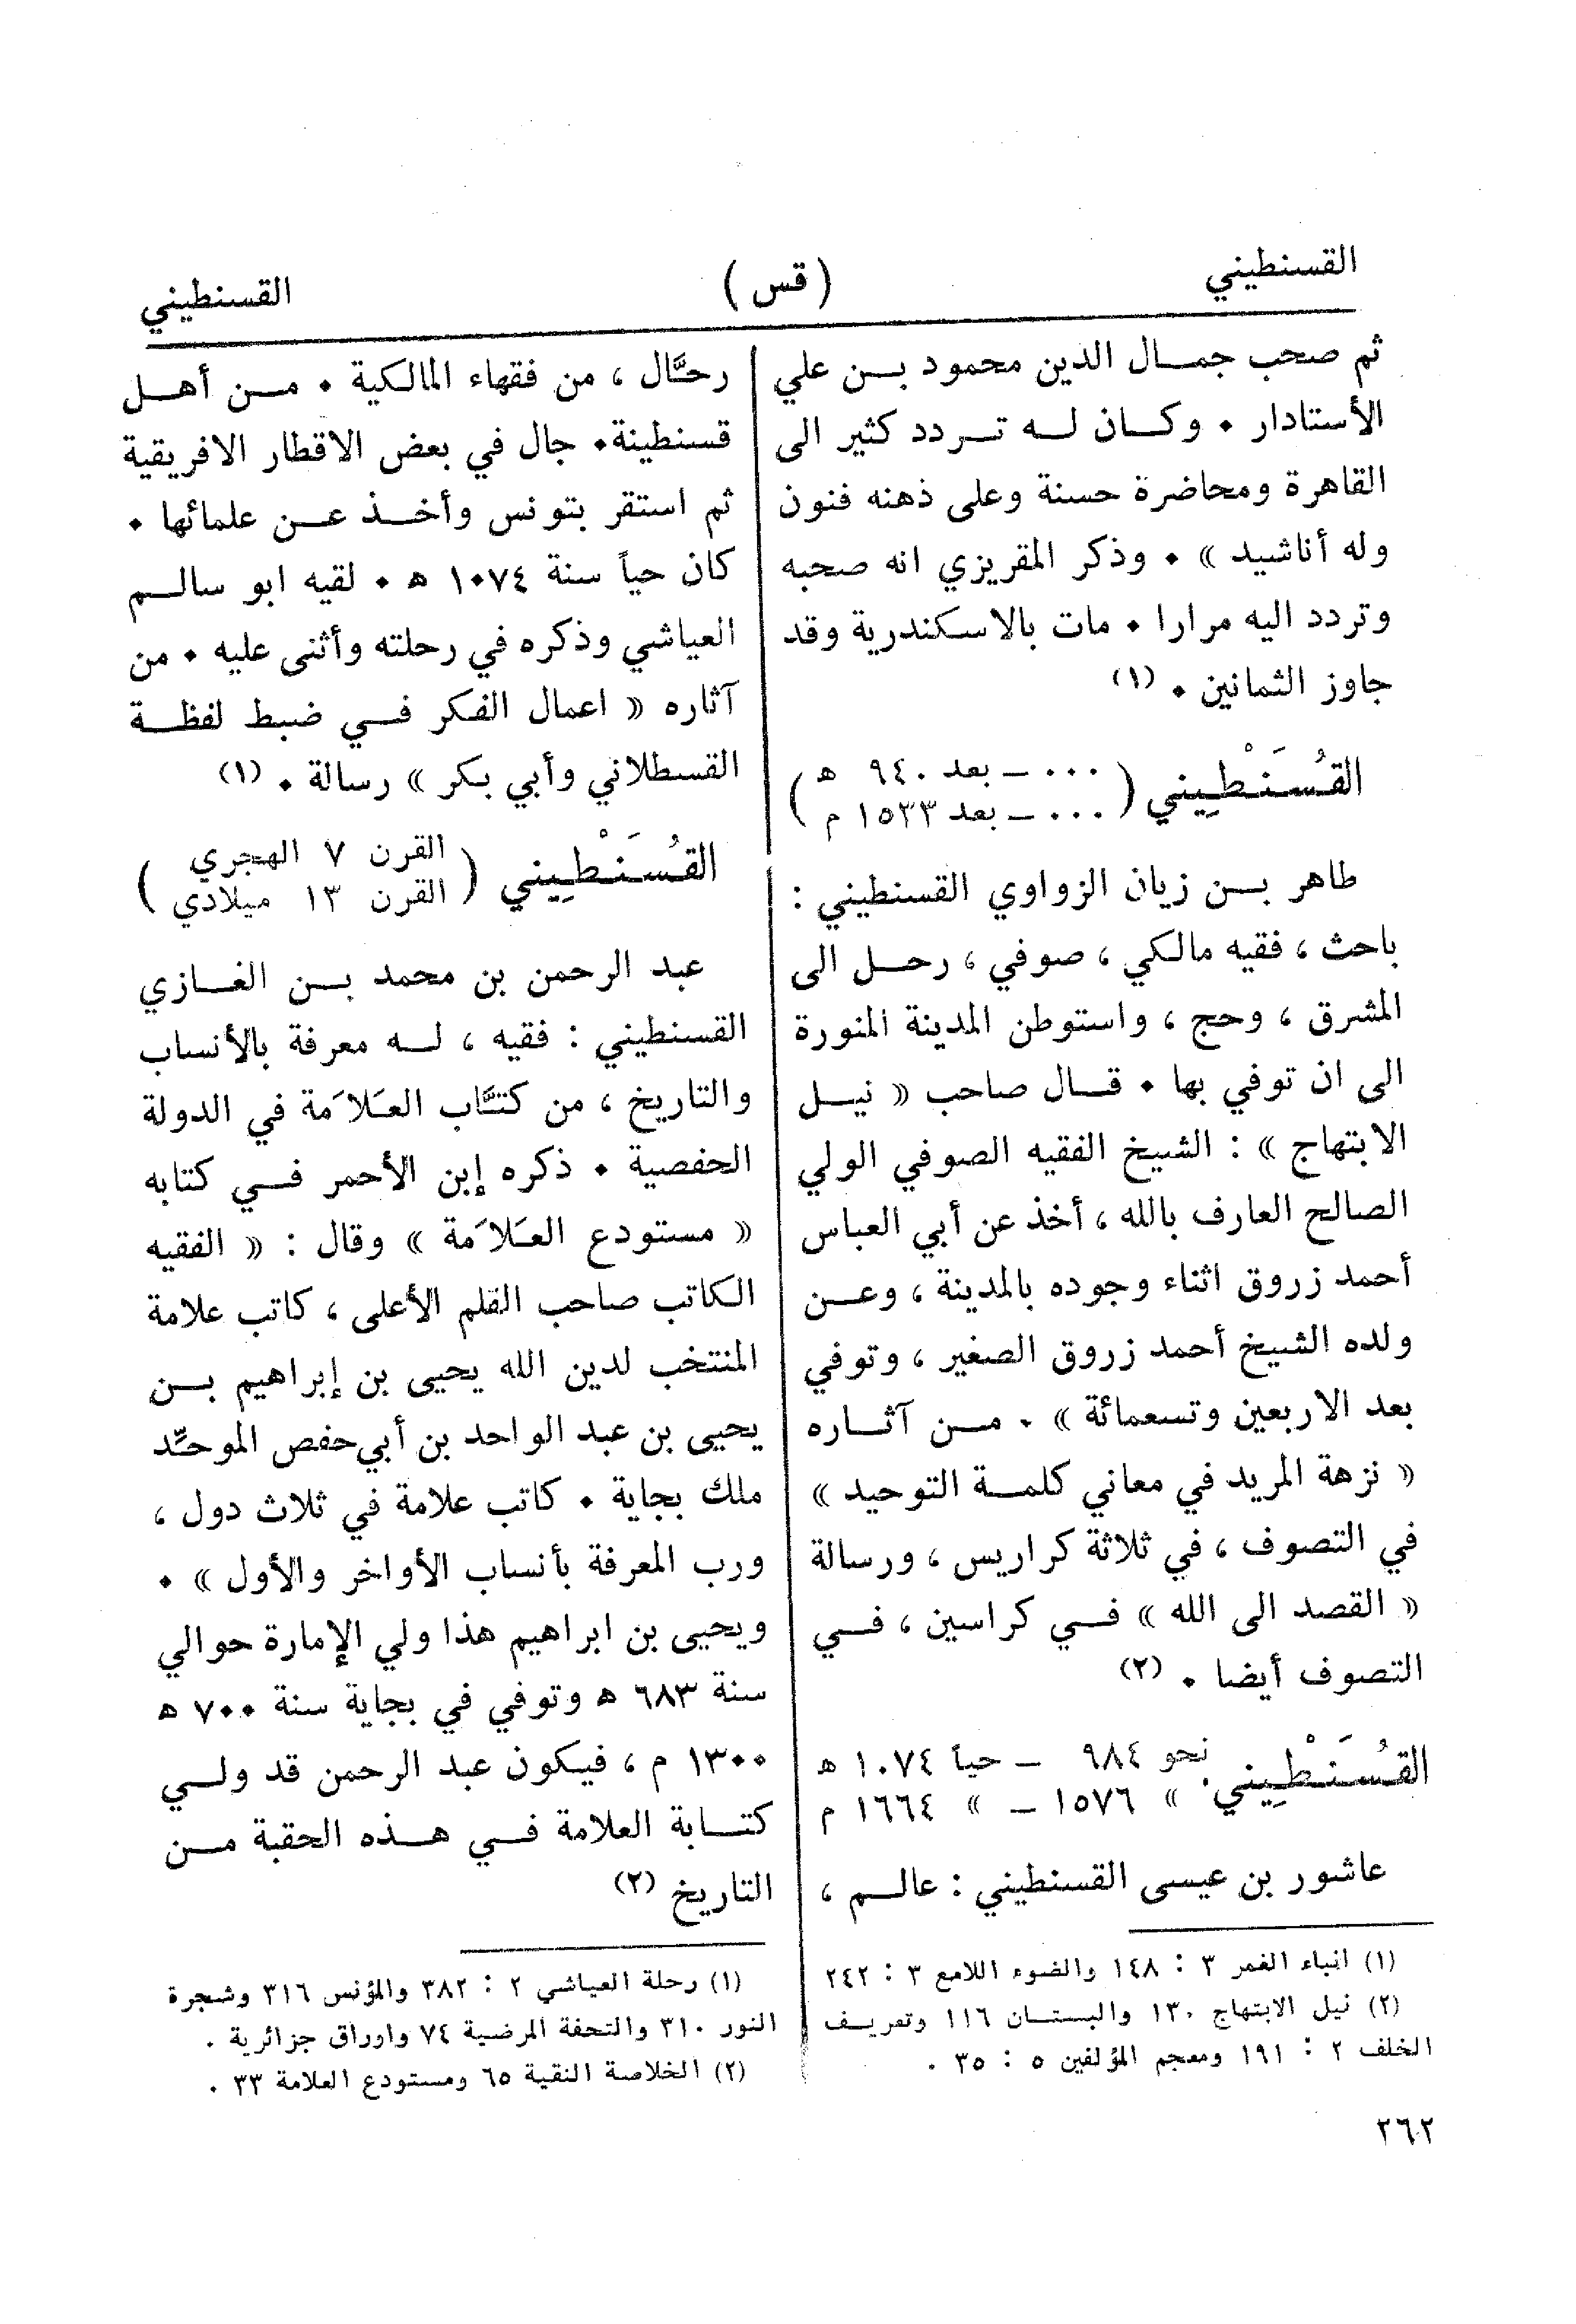 القسنطيني
( قس )
القسنطيني
ثم صحب جمال الدين محمود بن علي
الأستادار . وكان له تردد كثير الى
القاهرة ومحاضرة حسنة وعلى ذهنه فنون
وله أناشيد » . وذكر المقريزي انه صحبه
وتردد اليه مرارا . مات بالاسكندرية وقد
جاوز الثمانين . (١)
القُسَنْطِيني ( ... ـ بعد ٩٤٠ هـ
... ـ بعد ١٥٣٣ م )
طاهر بن زيان الزواوي القسنطيني :
باحث ، فقيه مالكي ، صوفي ، رحل الى
المشرق ، وحج ، واستوطن المدينة المنورة
الى ان توفي بها . قال صاحب « نيل
الابتهاج » : الشيخ الفقيه الصوفي الولي
الصالح العارف بالله ، أخذ عن أبي العباس
أحمد زروق اثناء وجوده بالمدينة ، وعن
ولده الشيخ أحمد زروق الصغير ، وتوفي
بعد الاربعين وتسعمائة » . من آثاره
« نزهة المريد في معاني كلمة التوحيد »
في التصوف ، في ثلاثة كراريس ، ورسالة
« القصد الى الله » في كراسين ، في
التصوف أيضا . (٢)
القُسَنْطِيني نحو ٩٨٤ ـ حياً ١٠٧٤ هـ
» ١٥٧٦ ـ » ١٦٦٤ م
عاشور بن عيسى القسنطيني : عالم ،
(١) انباء الغمر ٣ : ١٤٨ والضوء اللامع ٣ : ٢٤٢
(٢) نيل الابتهاج ١٣٠ والبستان ١١٦ وتعريف
الخلف ٢ : ١٩١ ومعجم المؤلفين ٥ : ٣٥ .
رحَّال ، من فقهاء المالكية . من أهل
قسنطينة . جال في بعض الاقطار الافريقية
ثم استقر بتونس وأخذ عن علمائها .
كان حياً سنة ١٠٧٤ هـ . لقيه ابو سالم
العياشي وذكره في رحلته وأثنى عليه . من
آثاره « اعمال الفكر في ضبط لفظة
القسطلاني وأبي بكر » رسالة . (١)
القُسَنْطِيني ( القرن ٧ الهجري
القرن ١٣ ميلادي )
عبد الرحمن بن محمد بن الغازي
القسنطيني : فقيه ، له معرفة بالأنساب
والتاريخ ، من كتَّاب العَلاَمة في الدولة
الحفصية . ذكره إبن الأحمر في كتابه
« مستودع العَلاَمة » وقال : « الفقيه
الكاتب صاحب القلم الأعلى ، كاتب علامة
المنتخب لدين الله يحيى بن إبراهيم بن
يحيى بن عبد الواحد بن أبي حفص الموحِّد
ملك بجاية . كاتب علامة في ثلاث دول ،
ورب المعرفة بأنساب الأواخر والأول » .
ويحيى بن ابراهيم هذا ولي الإمارة حوالي
سنة ٦٨٣ هـ وتوفي في بجاية سنة ٧٠٠ هـ
١٣٠٠ م ، فيكون عبد الرحمن قد ولي
كتابة العلامة في هذه الحقبة من
التاريخ (٢)
(١) رحلة العياشي ٢ : ٣٨٢ والمؤنس ٣١٦ وشجرة
النور ٣١٠ والتحفة المرضية ٧٤ واوراق جزائرية .
(٢) الخلاصة النقية ٦٥ ومستودع العلامة ٣٣ .
٢٦٢